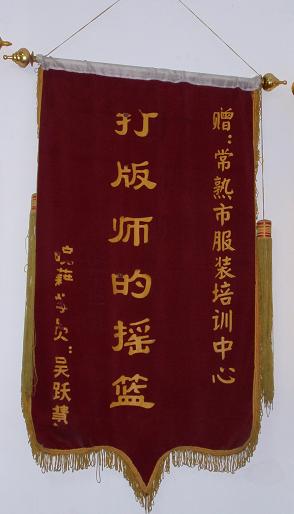 赠：常熟市服装培训中心
打版师的摇篮
学员：吴跃